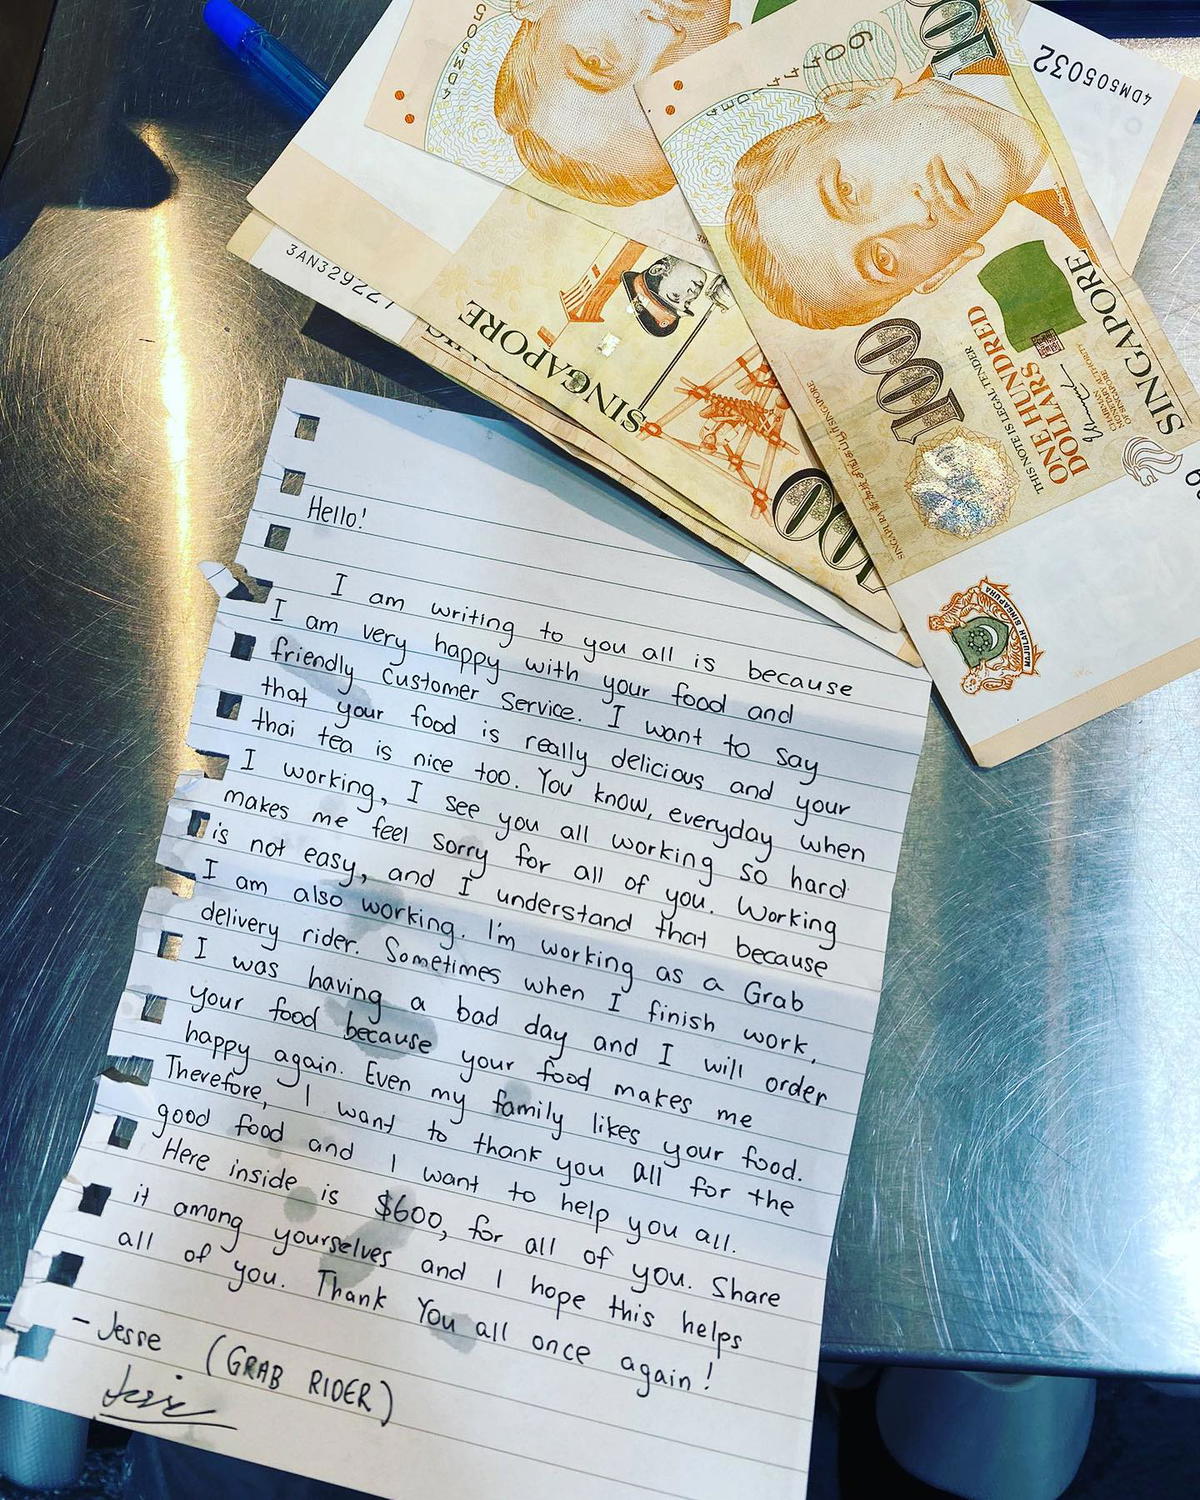 505MD4
100
4DM505032
3AN329227
SINGAPORE
100
SINGAPORE
100
ONE HUNDRED
DOLLARS
THIS NOTE IS LEGAL TENDER
MONETARY AUTHORITY
OF SINGAPORE
SINGAPURA
MAJULAH SINGAPURA
Hello!
I am writing to you all is because
I am very happy with your food and
friendly customer service. I want to say
that your food is really delicious and your
thai tea is nice too. You know, everyday when
I working, I see you all working so hard
makes me feel sorry for all of you. Working
is not easy, and I understand that because
I am also working. I'm working as a Grab
delivery rider. Sometimes when I finish work,
I was having a bad day and I will order
your food because your food makes me
happy again. Even my family likes your food.
Therefore, I want to thank you all for the
good food and I want to help you all.
Here inside is $600, for all of you. Share
it among yourselves and I hope this helps
all of you. Thank You all once again!
- Jesse (GRAB RIDER)